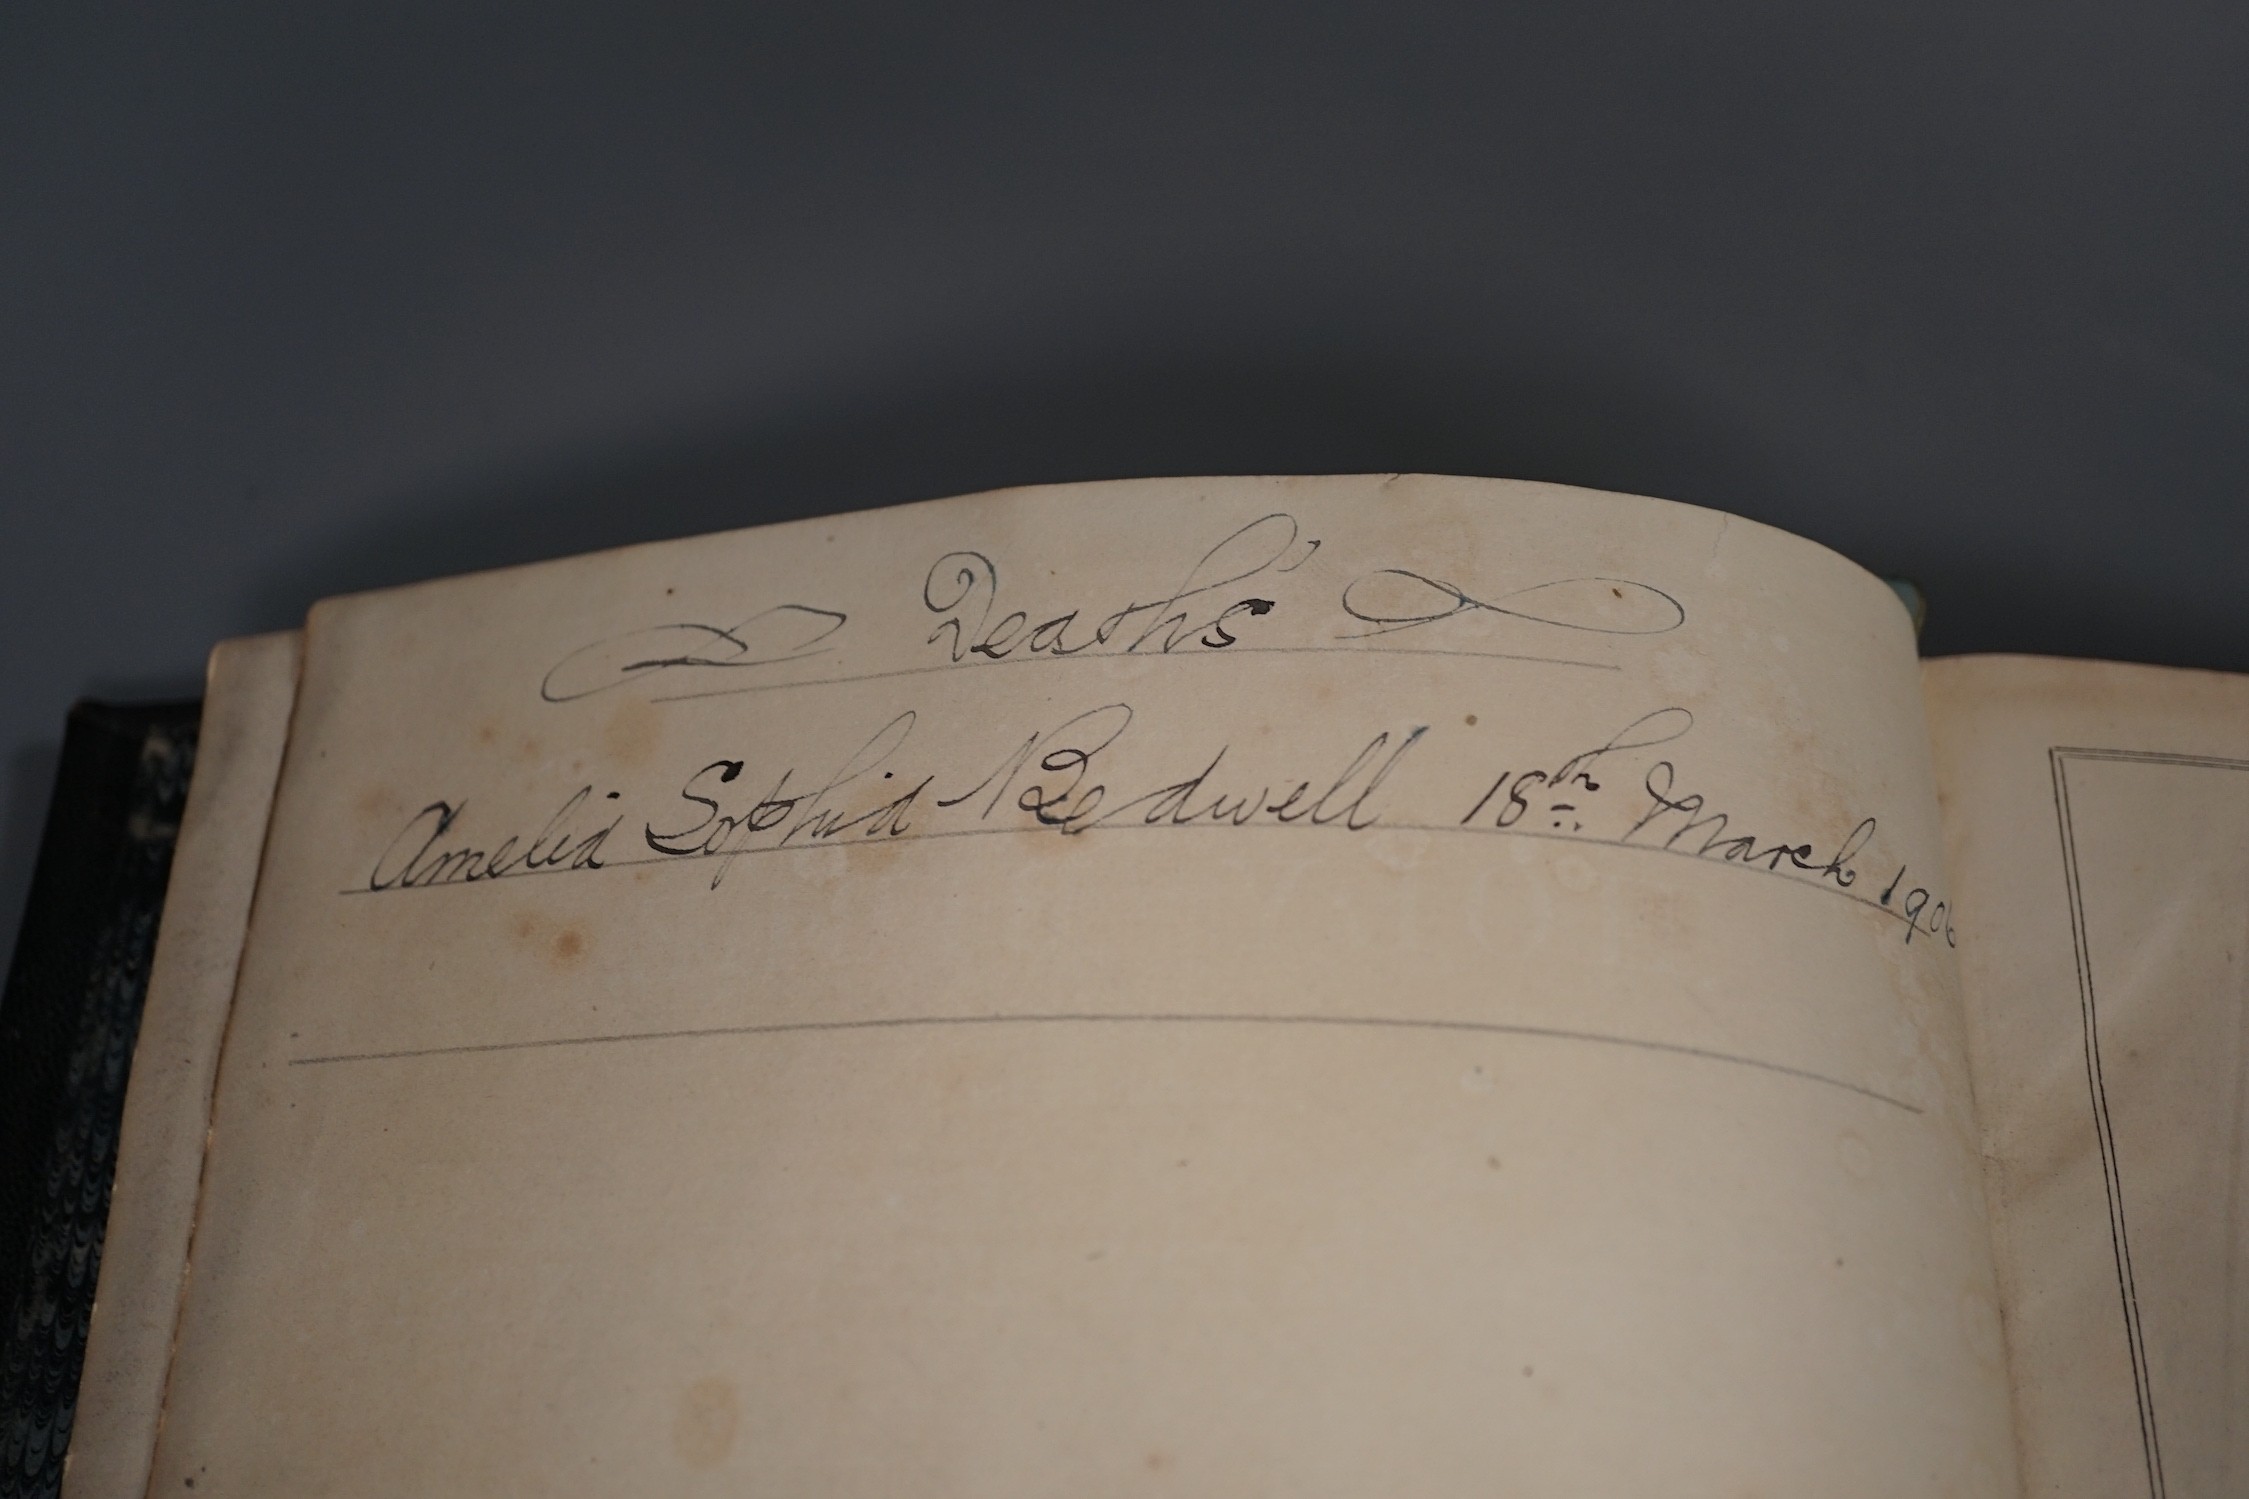 Deaths
Amelia Sophia Bedwell 18th March 1906